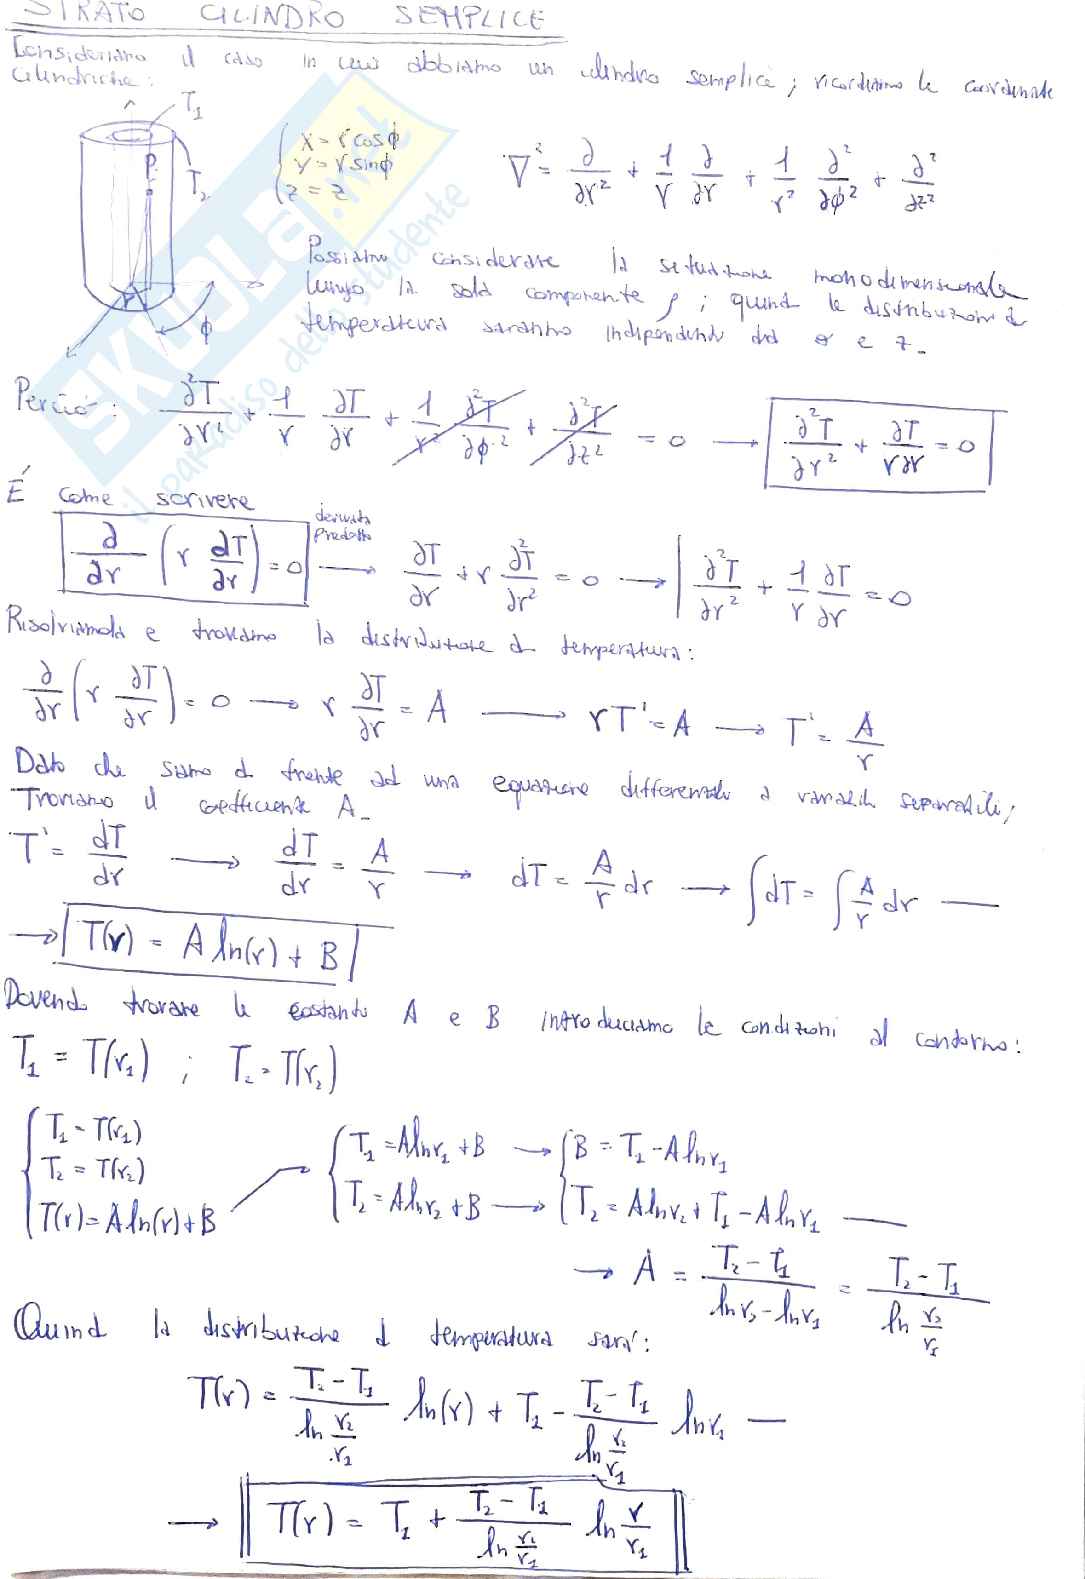 STRATO CILINDRO SEMPLICE
Consideriamo il caso in cui abbiamo un cilindro semplice; ricordiamo le coordinate
cilindriche:
T₁
T₂
P
φ
{ x = r cosφ
y = r sinφ
z = z
∇² = ∂/∂r² + 1/r ∂/∂r + 1/r² ∂²/∂φ² + ∂²/∂z²
Possiamo considerare la situazione monodimensionale
lungo la sola componente ρ; quindi le distribuzioni di
temperatura saranno indipendenti da θ e z.
Perciò: ∂²T/∂r² + 1/r ∂T/∂r + 1/r² ∂²T/∂φ² + ∂²T/∂z² = 0 → ∂²T/∂r² + ∂T/r∂r = 0
É come scrivere
∂/∂r (r ∂T/∂r) = 0 derivata prodotto → ∂T/∂r + r ∂²T/∂r² = 0 → ∂²T/∂r² + 1/r ∂T/∂r = 0
Risolviamola e troviamo la distribuzione di temperatura:
∂/∂r (r ∂T/∂r) = 0 → r ∂T/∂r = A → rT' = A → T' = A/r
Dato che siamo di fronte ad una equazione differenziale a variabili separabili;
Troviamo il coefficiente A.
T' = dT/dr → dT/dr = A/r → dT = A/r dr → ∫dT = ∫A/r dr —
→ T(r) = A ln(r) + B
Dovendo trovare le costanti A e B introduciamo le condizioni al contorno:
T₁ = T(r₁) ; T₂ = T(r₂)
{ T₁ = T(r₁)
T₂ = T(r₂)
T(r) = A ln(r) + B
{ T₁ = A ln r₁ + B → { B = T₁ - A ln r₁
T₂ = A ln r₂ + B → T₂ = A ln r₂ + T₁ - A ln r₁ —
→ A = T₂ - T₁ / ln r₂ - ln r₁ = T₂ - T₁ / ln r₂/r₁
Quindi la distribuzione di temperatura sarà:
T(r) = T₂ - T₁ / ln r₂/r₁ ln(r) + T₁ - T₂ - T₁ / ln r₂/r₁ ln r₁ —
→ T(r) = T₁ + T₂ - T₁ / ln r₂/r₁ ln r/r₁
SKUOLA.net
il paradiso dello studente